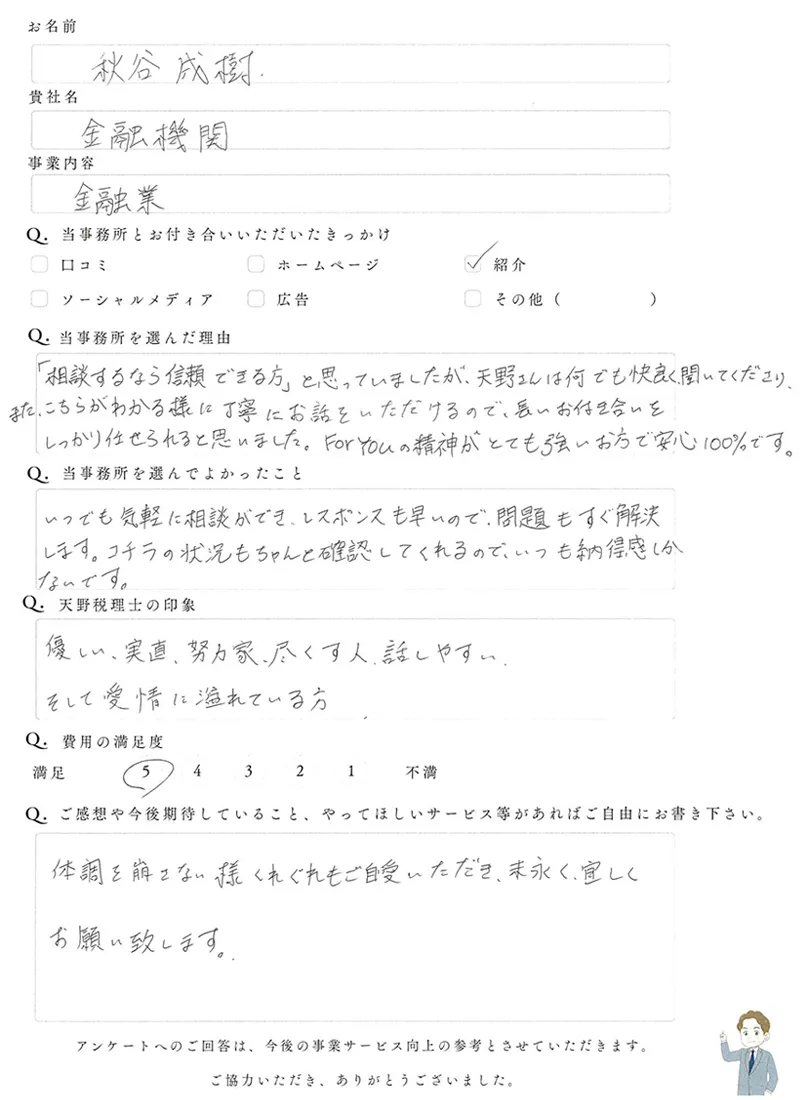 お名前
秋谷 成樹.
貴社名
金融機関
事業内容
金融業
Q. 当事務所とお付き合いいただいたきっかけ
口コミ ホームページ 紹介
ソーシャルメディア 広告 その他（ ）
Q. 当事務所を選んだ理由
「相談するなら信頼できる方」と思っていましたが、天野さんは何でも快良く聞いてくださり、
また、こちらがわかる様に丁寧にお話をいただけるので、長いお付き合いを
しっかり任せられると思いました。For Youの精神がとても強いお方で安心100%です。
Q. 当事務所を選んでよかったこと
いつでも気軽に相談ができ、レスポンスも早いので、問題もすぐ解決
します。コチラの状況もちゃんと確認してくれるので、いつも納得感しか
ないです。
Q. 天野税理士の印象
優しい、実直、努力家、尽くす人、話しやすい、
そして愛情に溢れている方
Q. 費用の満足度
満足 5 4 3 2 1 不満
Q. ご感想や今後期待していること、やってほしいサービス等があればご自由にお書き下さい。
体調を崩さない様くれぐれもご自愛いただき、末永く、宜しく
お願い致します。
アンケートへのご回答は、今後の事業サービス向上の参考とさせていただきます。
ご協力いただき、ありがとうございました。